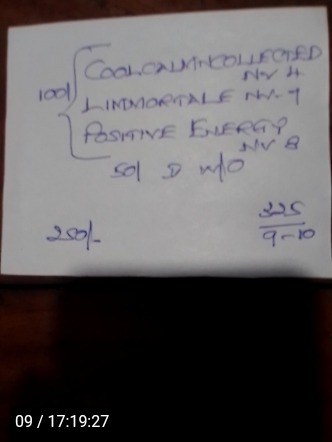 COOLCALMNCOLLECTED
NV 4
100/ LIMMORTALE NV-9
POSITIVE ENERGY
NV 8
50/ D W/O
250/-
325
9-10
09 / 17:19:27